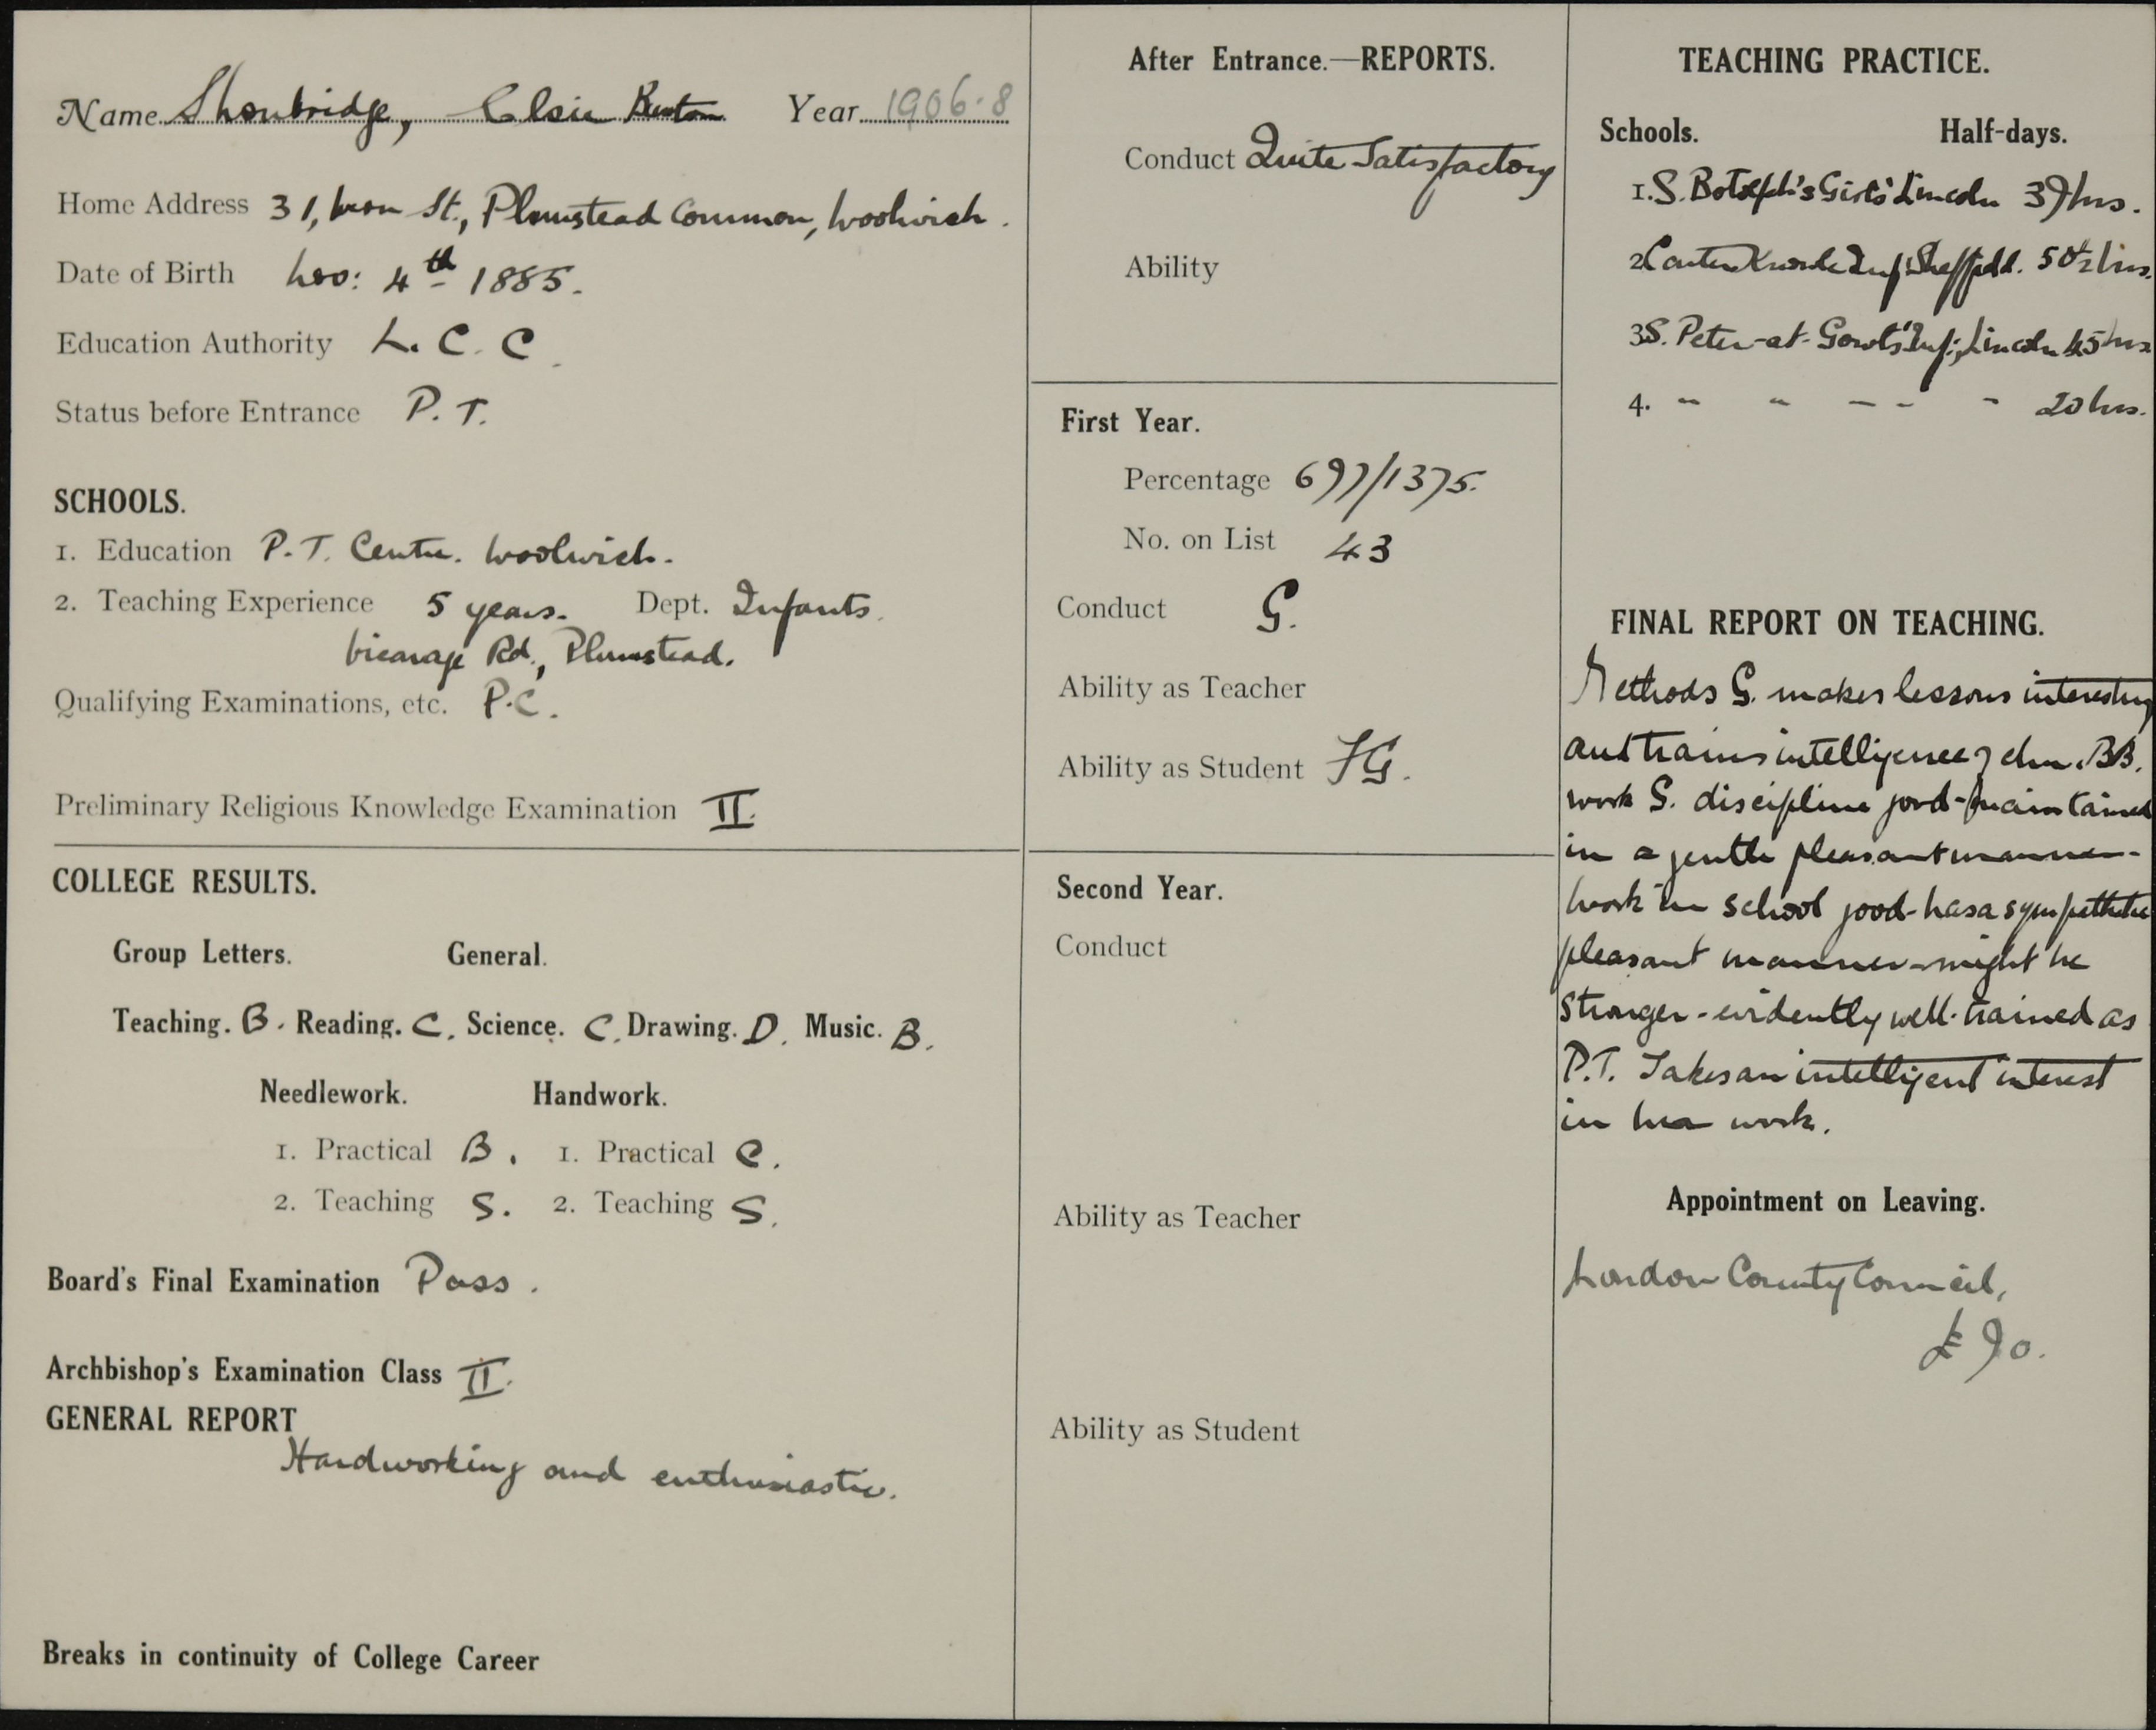 Name Shoubridge, Elsie Burton Year 1906-8
Home Address 31, Iron St., Plumstead Common, Woolwich.
Date of Birth Nov: 4th 1885.
Education Authority L. C. C.
Status before Entrance P. T.
SCHOOLS.
1. Education P. T. Centre. Woolwich.
2. Teaching Experience 5 years. Dept. Infants.
Vicarage Rd., Plumstead.
Qualifying Examinations, etc. P.C.
Preliminary Religious Knowledge Examination II.
COLLEGE RESULTS.
Group Letters. General.
Teaching. B. Reading. C. Science. C. Drawing. D. Music. B.
Needlework. Handwork.
1. Practical B. 1. Practical C.
2. Teaching S. 2. Teaching S.
Board's Final Examination Pass.
Archbishop's Examination Class II.
GENERAL REPORT
Hardworking and enthusiastic.
Breaks in continuity of College Career
After Entrance.—REPORTS.
Conduct Quite Satisfactory
Ability
First Year.
Percentage 697/1375.
No. on List 43
Conduct G.
Ability as Teacher
Ability as Student FG.
Second Year.
Conduct
Ability as Teacher
Ability as Student
TEACHING PRACTICE.
Schools. Half-days.
1. S. Botolph's Girls' Lincoln 37 hrs.
2 Carter Knowle Inf; Sheffield. 50½ hrs.
3 S. Peter-at-Gowts' Inf; Lincoln 45 hrs.
4. " " - - - 20 hrs.
FINAL REPORT ON TEACHING.
Methods G. makes lessons interesting
and trains intelligence of chn. BB.
work G. discipline good-maintained
in a gentle pleasant manner-
Work in school good-has a sympathetic
pleasant manner-might be
stronger-evidently well-trained as
P.T. Takes an intelligent interest
in her work.
Appointment on Leaving.
London County Council,
£90.